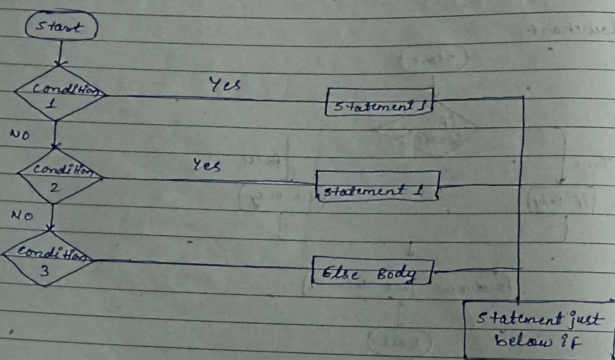 Start
Condition
1
Yes
Statement 1
NO
Condition
2
Yes
Statement 1
NO
Condition
3
Else Body
Statement just
below if